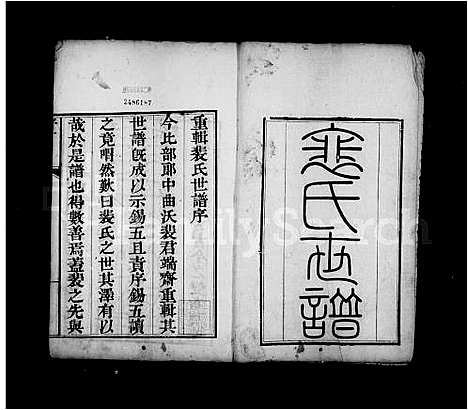 裴氏世譜
重輯裴氏世譜序
今比部郎中曲沃裴君端齋重輯其
世譜旣成以示錫五且責序錫五讀
之竟喟然歎曰裴氏之世其澤有以
哉於是譜也得數善焉蓋裴之先與
2486187
FamilySearch